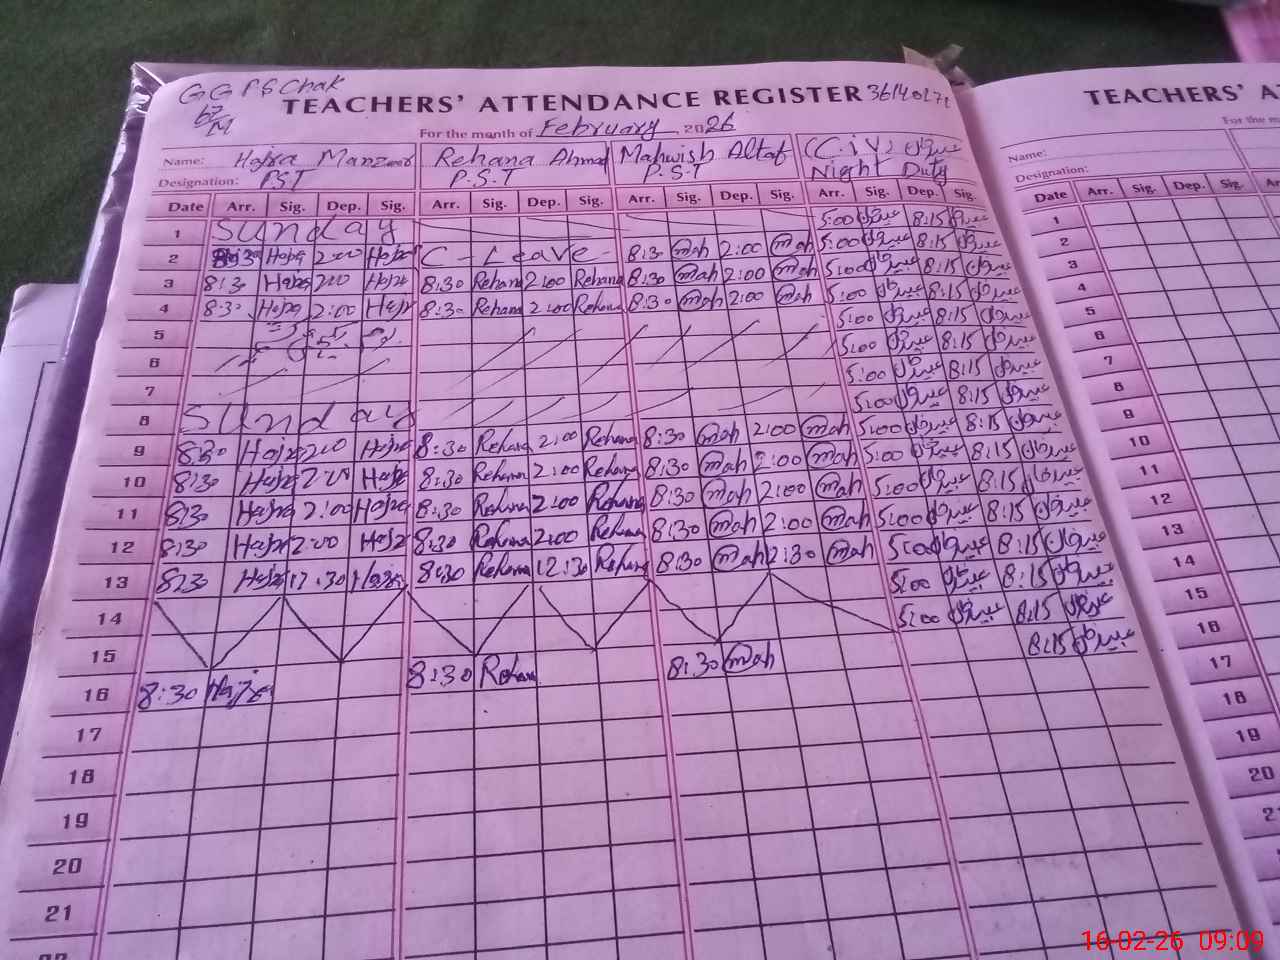 GGPS Chak
62
M
TEACHERS' ATTENDANCE REGISTER 36140171
For the month of February 2026
Name: Hajra Manzoor Rehana Ahmad Mahwish Altaf (C.iV)
Designation: PST P.S.T P.S.T Night Duty
Date Arr. Sig. Dep. Sig. Arr. Sig. Dep. Sig. Arr. Sig. Dep. Sig. Arr. Sig. Dep. Sig.
1 Sunday 5:00 8:15
2 8:30 Hajra 2:00 Hajra C-Leave 8:30 mah 2:00 mah 5:00 8:15
3 8:30 Hajra 2:00 Hajra 8:30 Rehana 2:00 Rehana 8:30 mah 2:00 mah 5:00 8:15
4 8:30 Hajra 2:00 Hajra 8:30 Rehana 2:00 Rehana 8:30 mah 2:00 mah 5:00 8:15
5 5:00 8:15
6 5:00 8:15
7 5:00 8:15
8 Sunday 5:00 8:15
9 8:30 Hajra 2:00 Hajra 8:30 Rehana 2:00 Rehana 8:30 mah 2:00 mah 5:00 8:15
10 8:30 Hajra 2:00 Hajra 8:30 Rehana 2:00 Rehana 8:30 mah 2:00 mah 5:00 8:15
11 8:30 Hajra 2:00 Hajra 8:30 Rehana 2:00 Rehana 8:30 mah 2:00 mah 5:00 8:15
12 8:30 Hajra 2:00 Hajra 8:30 Rehana 2:00 Rehana 8:30 mah 2:00 mah 5:00 8:15
13 8:30 Hajra 12:30 Hajra 8:30 Rehana 12:30 Rehana 8:30 mah 2:30 mah 5:00 8:15
14 5:00 8:15
15 8:15
16 8:30 Hajra 8:30 Rehan 8:30 mah
17
18
19
20
21
22
TEACHERS' A
For the m
Name:
Designation:
Date Arr. Sig. Dep. Sig. A
1
2
3
4
5
6
7
8
9
10
11
12
13
14
15
16
17
18
19
20
16-02-26 09:09